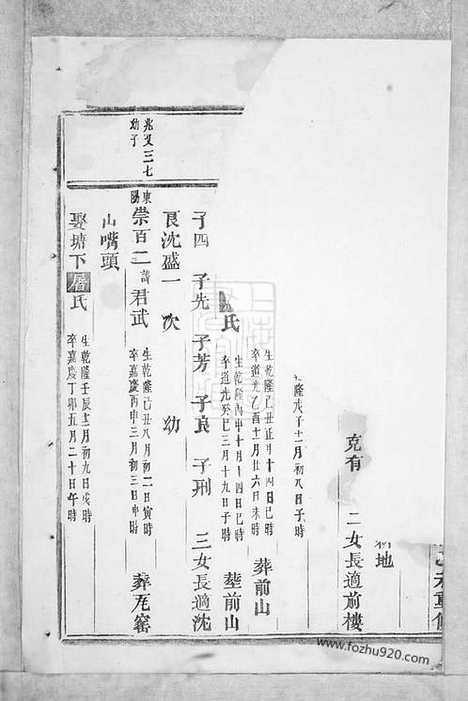 新地
克有 二女長適前樓
隆戊子十二月初八日子時
生乾隆己丑正月十四日巳時
卒道光乙酉十二月廿六日未時 葬前山
氏 生乾隆丙申十月十四日巳時
卒道光癸巳三月十九日子時 塟前山
子四 子先 子芳 子良 子刑 三女長適沈
良沈盛一 次 幼
兆文三七
幼子
東陽 崇百二 諱君武 生乾隆己丑八月初二日寅時
卒嘉慶丙申三月初三日申時 葬瓦窰
山嘴頭
娶塘下厝氏 生乾隆壬辰十二月初九日戌時
卒嘉慶丁卯五月二十日午時
www.fozhu920.com